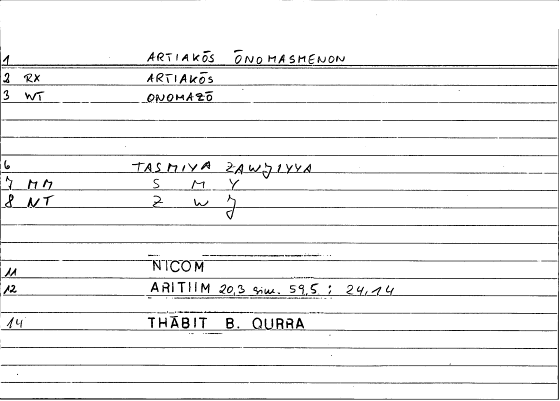 1 ARTIAKŌS ŌNOMASMENON
2 RX ARTIAKŌS
3 WT ONOMAZŌ
6 TASMIYA ZAWJIYYA
7 MM S M Y
8 NT Z W J
11 NICOM
12 ARITIIM 20,3 sim. 59,5 : 24,14
14 THĀBIT B. QURRA